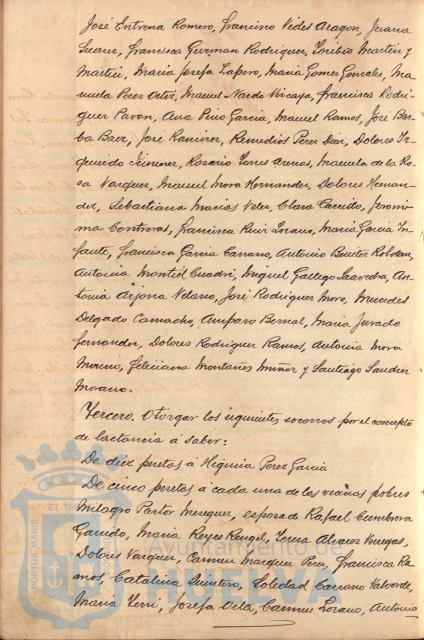 José Entrena Romero, Francisco Vides Aragon, Juana
Suarez, Francisca Guzman Rodriguez, Martin y
Martin, Maria Josefa Lapero, Maria Gomez Gonzalez, Ma-
nuela Perez Ortiz, Manuel Nardo Vizcaya, Francisca Rodri-
guez Pavon, Ana Pino Garcia, Manuel Ramos, José Bar-
ba Baez, José Ramirez, Remedios Perez Diaz, Dolores Iz-
quierdo Jimenez, Rosario Torres Arenas, Manuela de la Ro-
sa Vazquez, Manuel Mora Hernandez, Dolores Hernan-
dez, Sebastiana Macias Velez, Clara Carrito, Jeroni-
ma Contreras, Francisca Ruiz Lozano, Maria Garcia In-
fante, Francisca Garcia Carrano, Antonio Benitez Roldan,
Antonia Montiel Cuadri, Miguel Gallego Saavedra, An-
tonia Arjona Velano, José Rodriguez Moro, Mercedes
Delgado Camacho, Amparo Bernal, Maria Jurado
Fernandez, Dolores Rodriguez Ramos, Antonia Mora
Moreno, Feliciana Montañes Muñoz y Santiago Sanchez
Morano.
Tercero. Otorgar los siguientes socorros por el concepto
de lactancia á saber:
De diez pesetas á Higinia Perez Garcia
De cinco pesetas á cada una de las vecinas pobres
Milagro Pastor Menguez, esposa de Rafael Cumbrera
Garrido, Maria Reyes Rangel, Teresa Alvarez Venegas,
Dolores Vazquez, Carmen Marquez Perez, Francisca Ra-
mos, Catalina Quintero, Soledad Carrano Valverde,
Maria Josefa Ortiz, Carmen Lozano, Antonio
Ayuntamiento de
HUELVA
PORTUS MARIS
ET TER